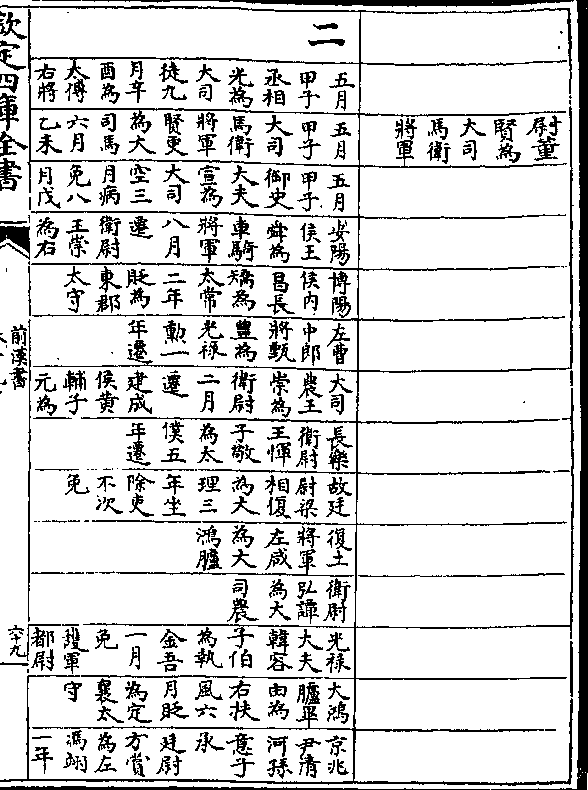 尉董
賢為
大司
馬衛
將軍
二
五月
甲子
丞相
光為
大司
徒九
月辛
酉為
太傅
右將
五月
甲子
大司
馬衛
將軍
賢更
為大
司馬
六月
乙未
五月
甲子
御史
大夫
宣為
大司
空三
月病
免八
月戊
安陽
侯王
舜為
車騎
將軍
八月
遷
衛尉
王崇
為右
博陽
侯内
昌長
矯為
太常
二年
貶為
東郡
太守
左曹
中郎
將甄
豐為
光祿
勲一
年遷
大司
農王
崇為
衛尉
二月
遷
建成
侯黄
輔子
元為
長樂
衛尉
王惲
子敬
為太
僕五
年遷
故廷
尉梁
相復
為大
理三
年坐
除吏
不次
免
復土
將軍
左咸
為大
鴻臚
衛尉
弘譚
為大
司農
光祿
大夫
韓容
子伯
為執
金吾
一月
免
護軍
都尉
大鴻
臚畢
由為
右扶
風六
月貶
為定
襄太
守
京兆
尹清
河孫
意子
承
廷尉
方賞
為左
馮翊
一年
欽定四庫全書
前漢書
六十九